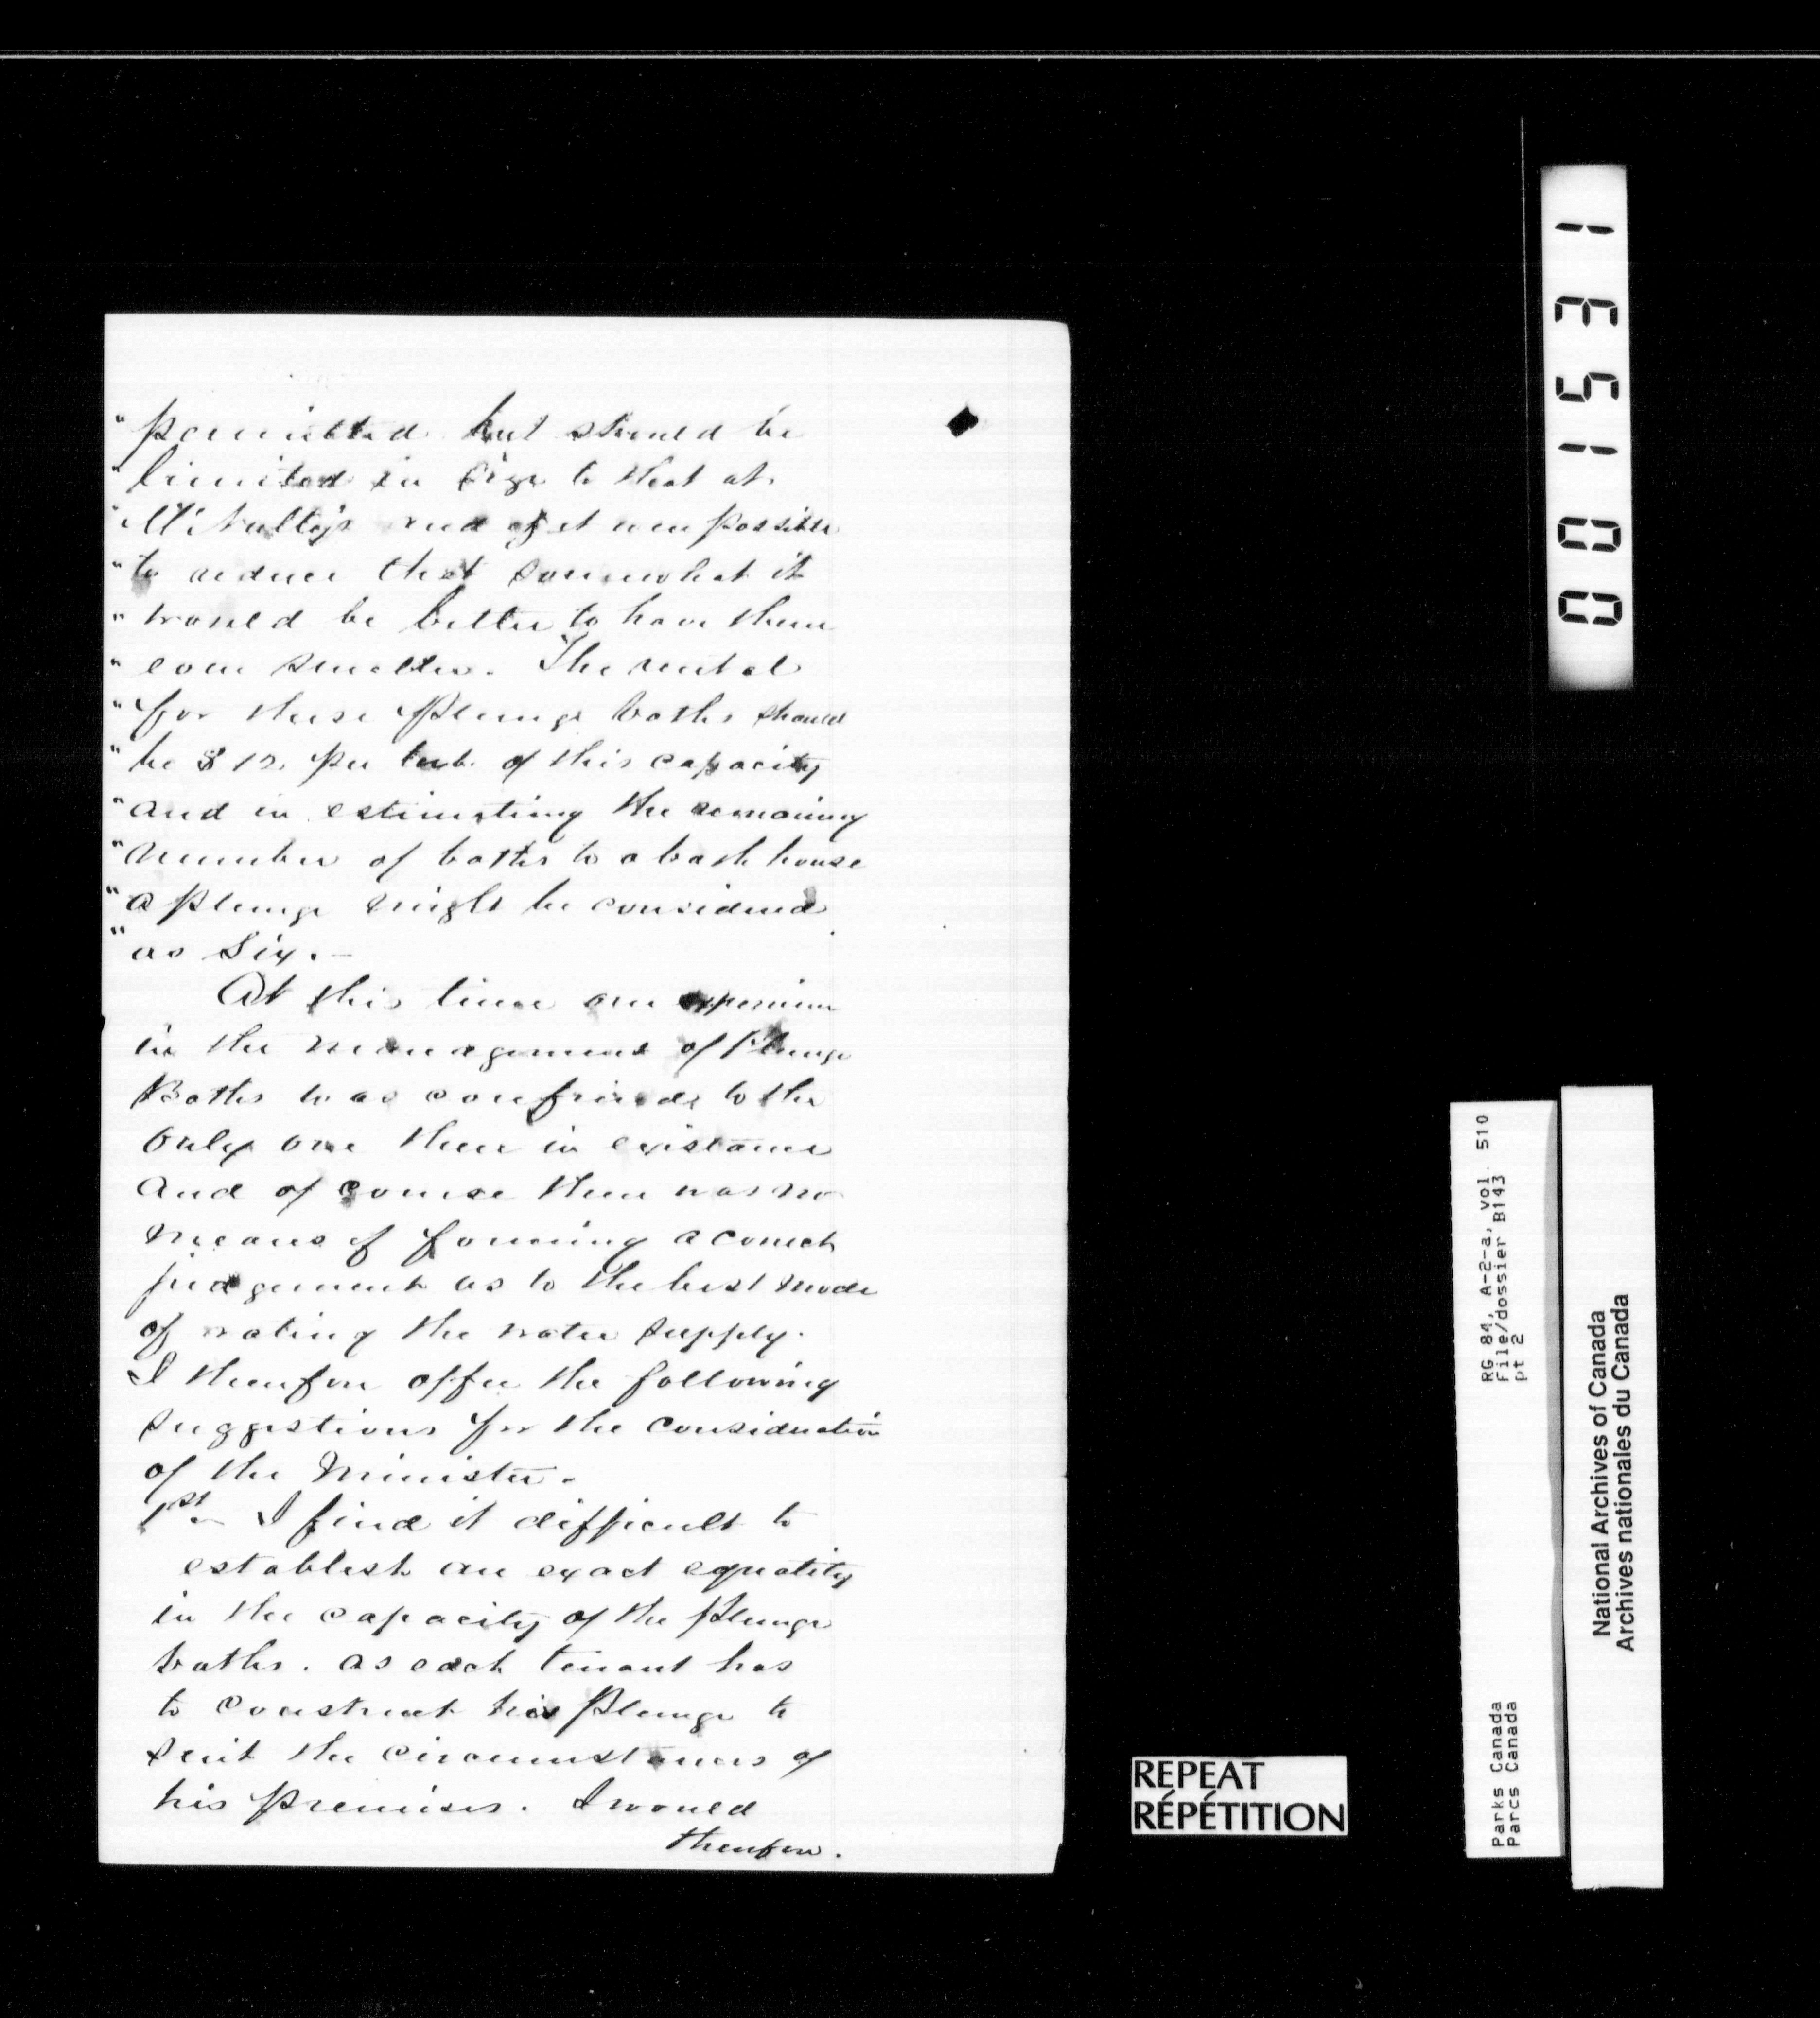 " permitted but should be
" limited in size to that at
" McNulty's and if it were possible
" to reduce that somewhat it
" would be better to have them
" even smaller. The rental
" for these plunge baths should
" be $12. per tub of this capacity
" and in estimating the remaining
" number of baths to a bath house
" a plunge might be considered
" as Six. —
At this time our experience
in the management of Plunge
Baths was confined to the
only one then in existance
and of course there was no
means of forming a correct
judgement as to the best mode
of rating the water supply.
I therefore offer the following
suggestions for the consideration
of the Minister.
1st I find it difficult to
establish an exact equality
in the capacity of the plunge
baths. as each tenant has
to construct his plunge to
suit the circumstances of
his premises. I would
therefore.
001531
RG 84, A-2-a, vol. 510
File/dossier B143
pt 2
Parks Canada
Parcs Canada
National Archives of Canada
Archives nationales du Canada
REPEAT
RÉPÉTITION